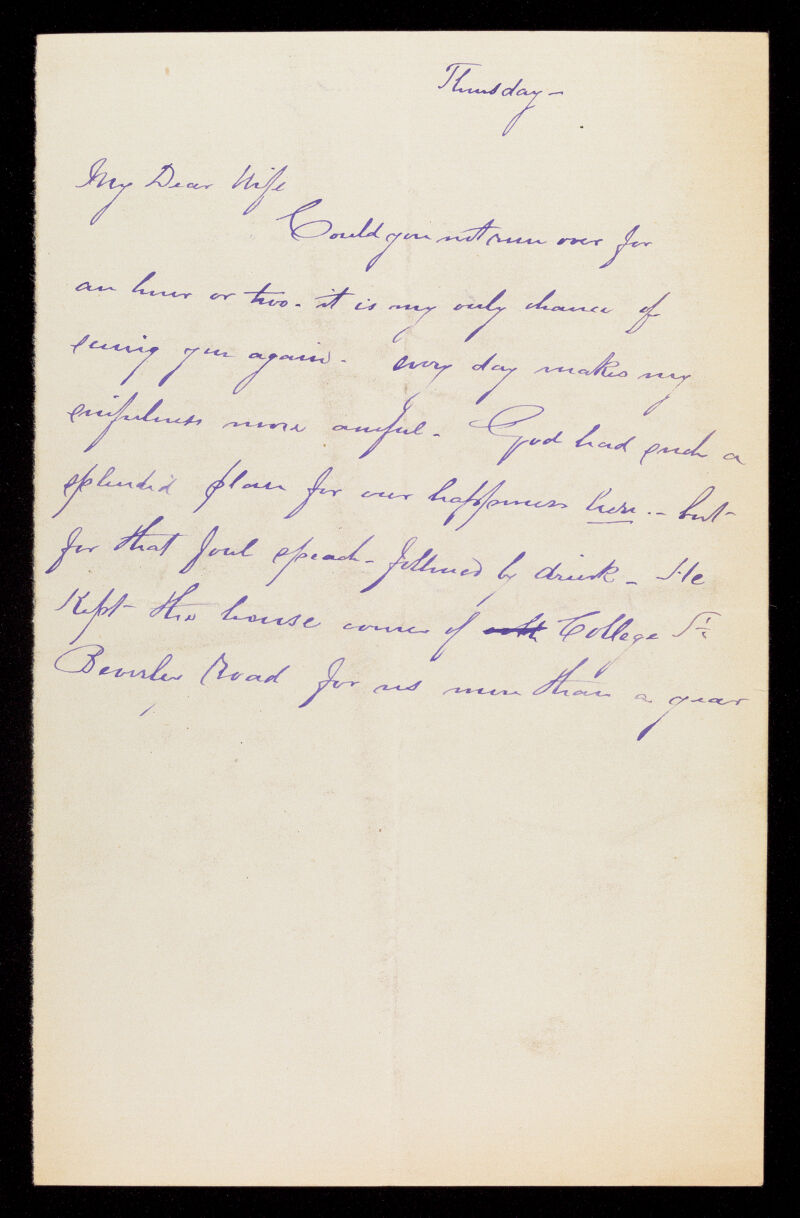 Thursday -
My Dear Wife
Could you not run over for
an hour or two - it is my only chance of
seeing you again - every day makes my
sinfulness more awful - God had such a
splendid plan for our happiness here. - but -
for that foul speach - followed by drink - He
Kept the house corner of College St
Road for us more than a year